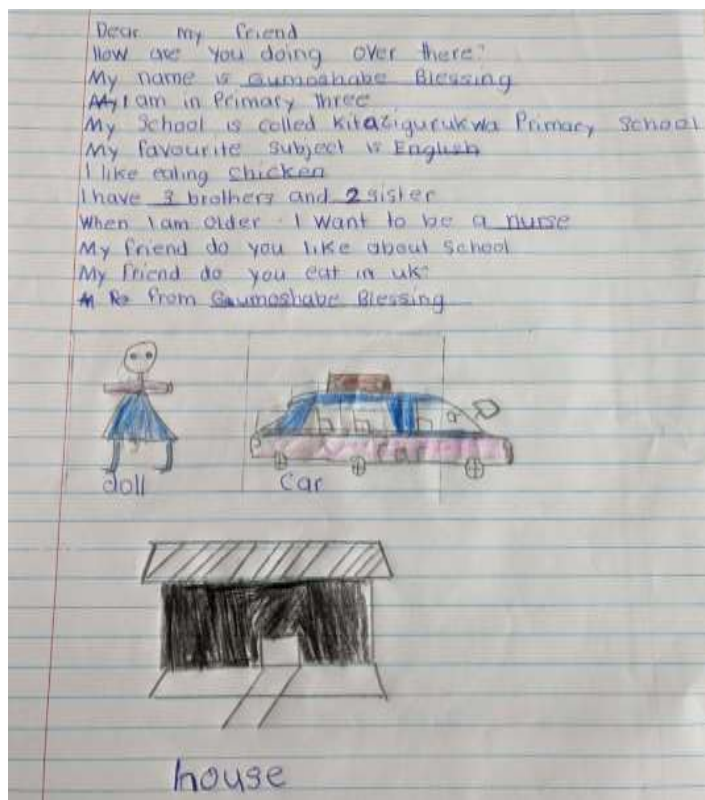 Dear my friend
How are you doing over there?
My name is Gumoshabe Blessing
I am in Primary three
My School is called Kitazigurukwa Primary School
My favourite Subject is English
I like eating chicken
I have 3 brothers and 2 sister
When I am older I want to be a nurse
My friend do you like about school
My friend do you eat in uk?
from Gumoshabe Blessing
doll
car
car
house